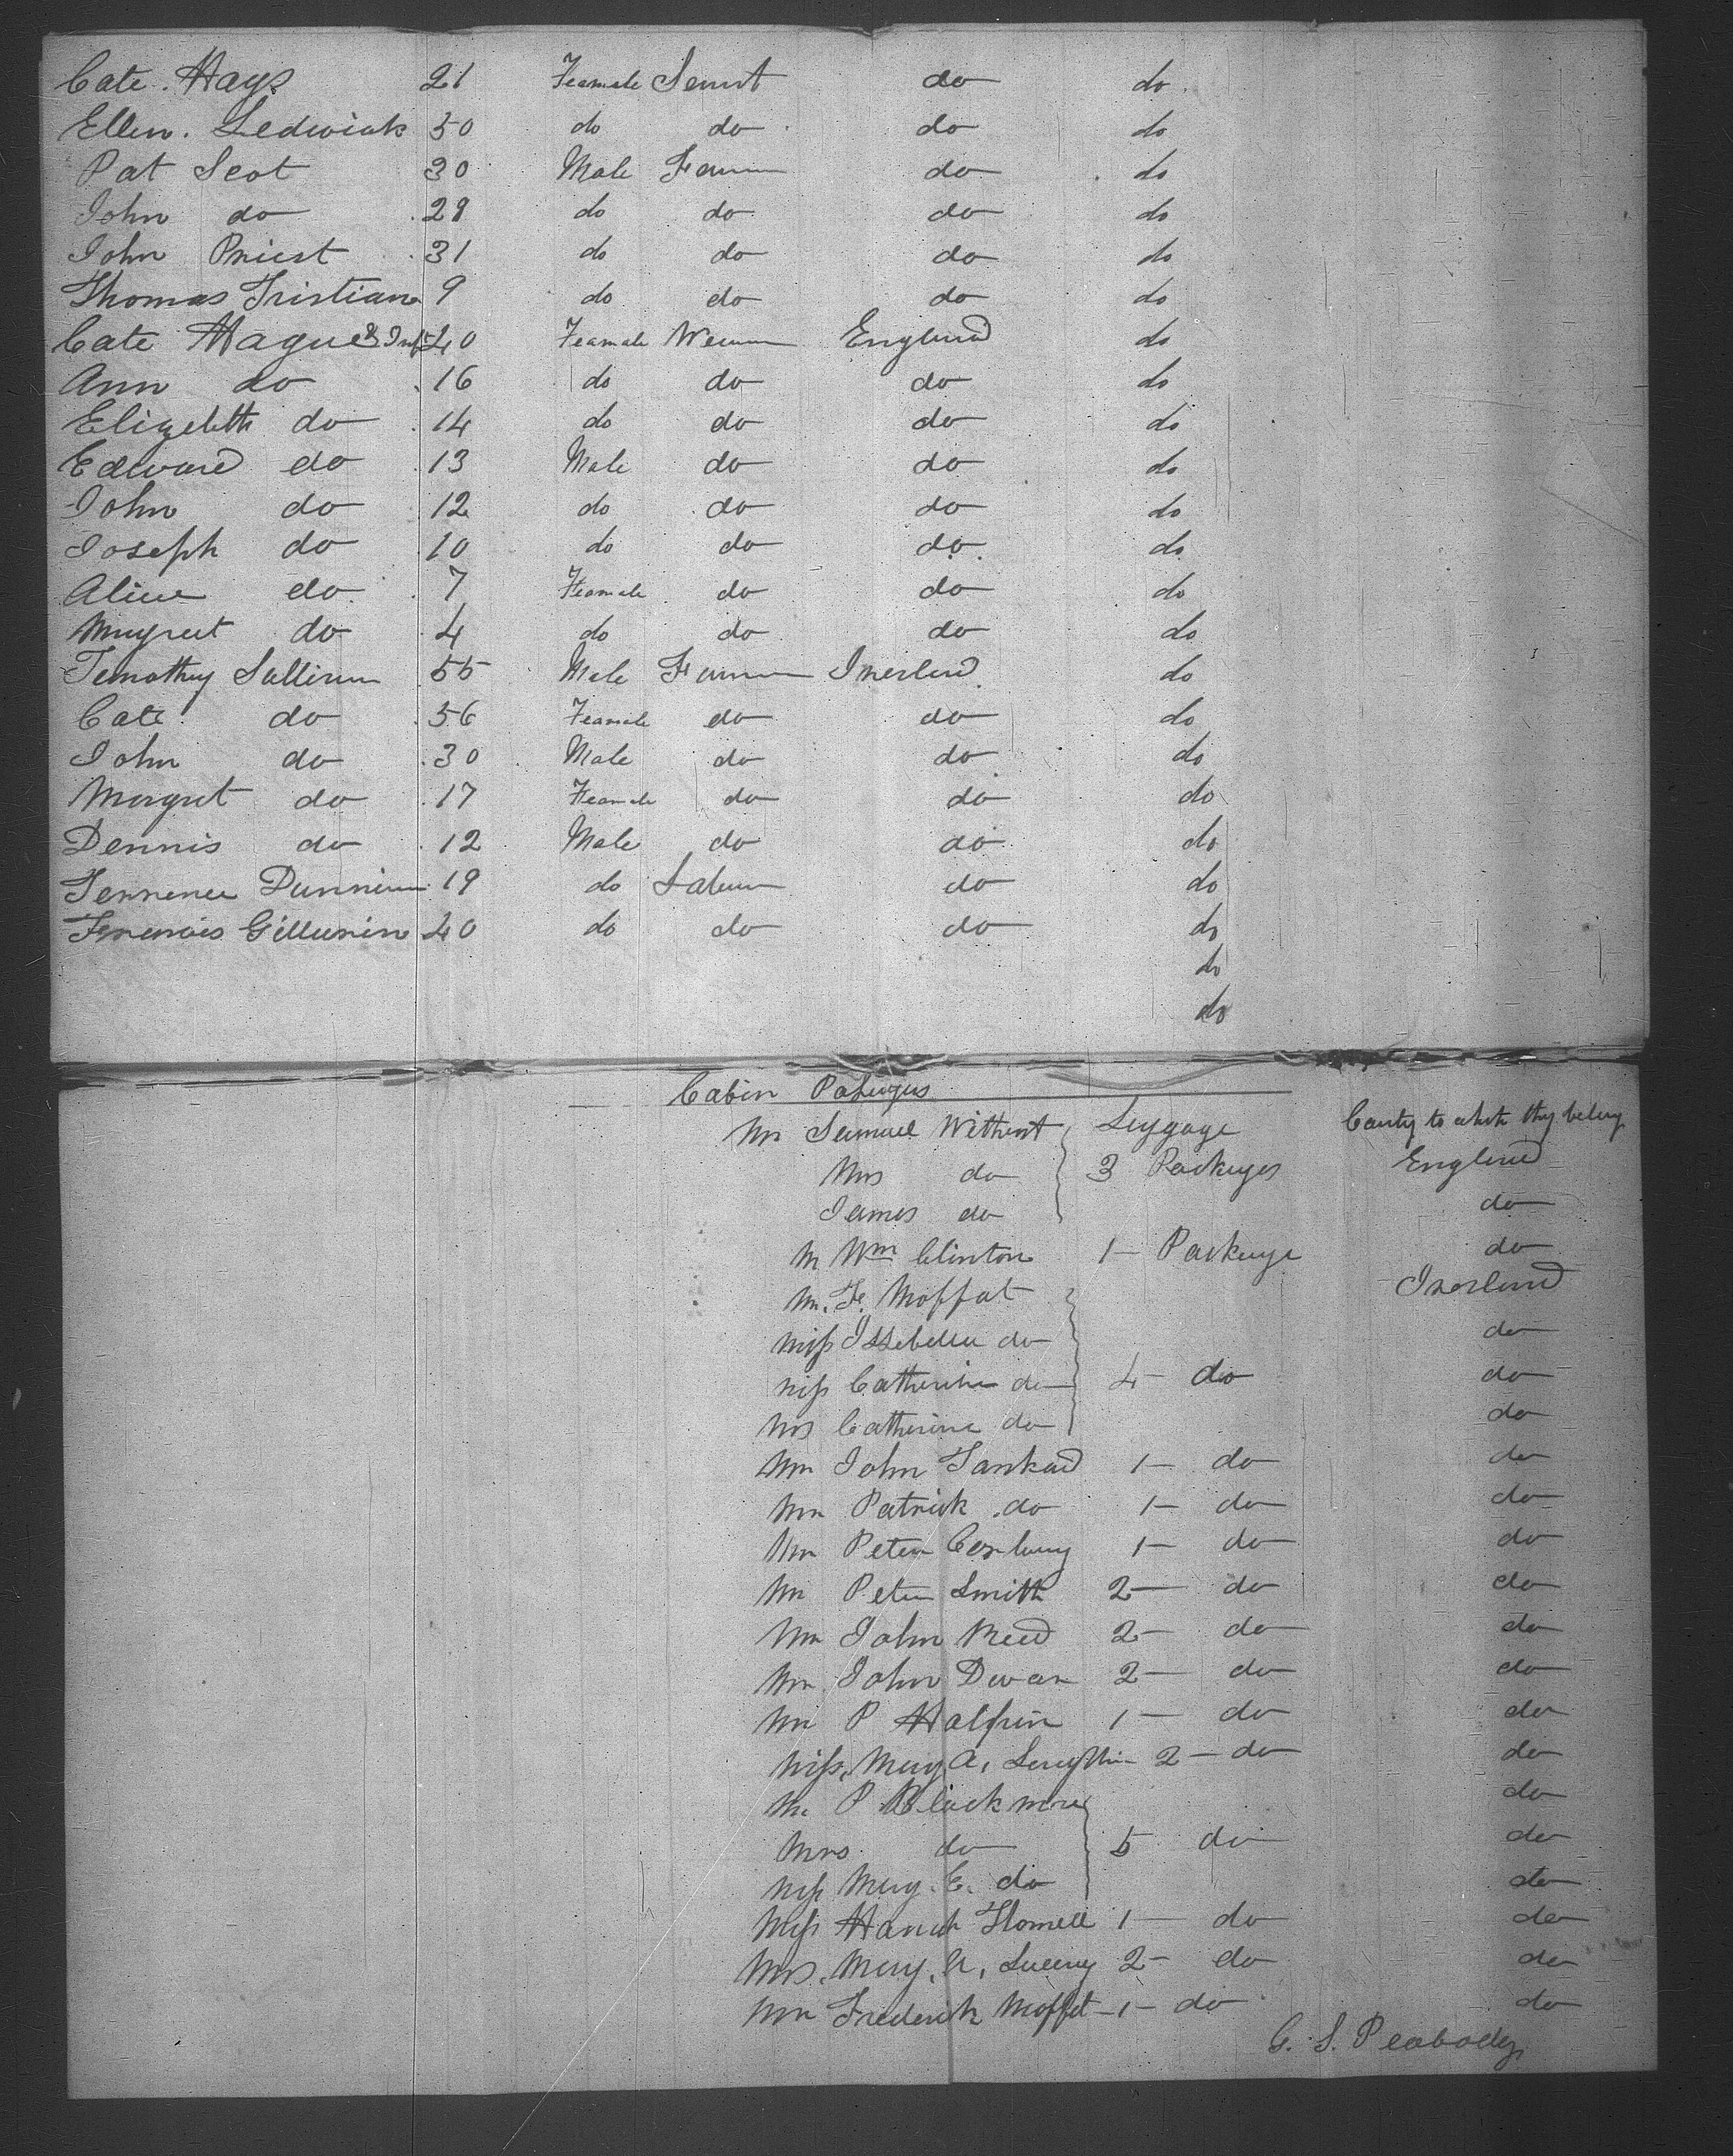 Cate Hays 21 Feamale Servnt do do
Ellen Ledwick 50 do do do do
Pat Scot 30 Male Farm do do
John do 29 do do do do
John Priest 31 do do do do
Thomas Tristian 9 do do do do
Cate Hague & Inft 40 Feamale England do
Ann do 16 do do do do
Elizebeth do 14 do do do do
Edward do 13 Male do do do
John do 12 do do do do
Joseph do 10 do do do do
Alice do 7 Feamale do do do
Mugreet do 4 do do do do
Temothey Sullivan 55 Male Farm Irerland do
Cate do 56 Feamale do do do
John do 30 Male do do do
Morgret do 17 Feamale do do do
Dennis do 12 Male do do do
Terrence 19 do Labur do do
Francis 40 do do do do
do
do
Cabin
Mr Samuel Luggage to which they belong
Mrs do 3 Packeges England
James do do
M Wm Clinton 1 — Packege do
M. F. Moffat Irerland
Miss Issebella do do
Miss Catherine do 4 — do do
Mrs Catherine do do
Mr John Tankard 1 — do do
Mr Patrick do 1 — do do
Mr Peter 1 — do do
Mr Peter Smith 2 — do do
Mr John Reed 2 — do do
Mr John Dwan 2 — do do
Mr P Halpin 1 — do do
Miss Mary A. 2 — do do
Mr P Blackmore do
Mrs do 5 do do
Miss Mary E. do do
Miss 1 — do do
Mrs. Mary. A. 2 — do do
Mr Frederick Moffet — 1 — do do
G. S. Peabody